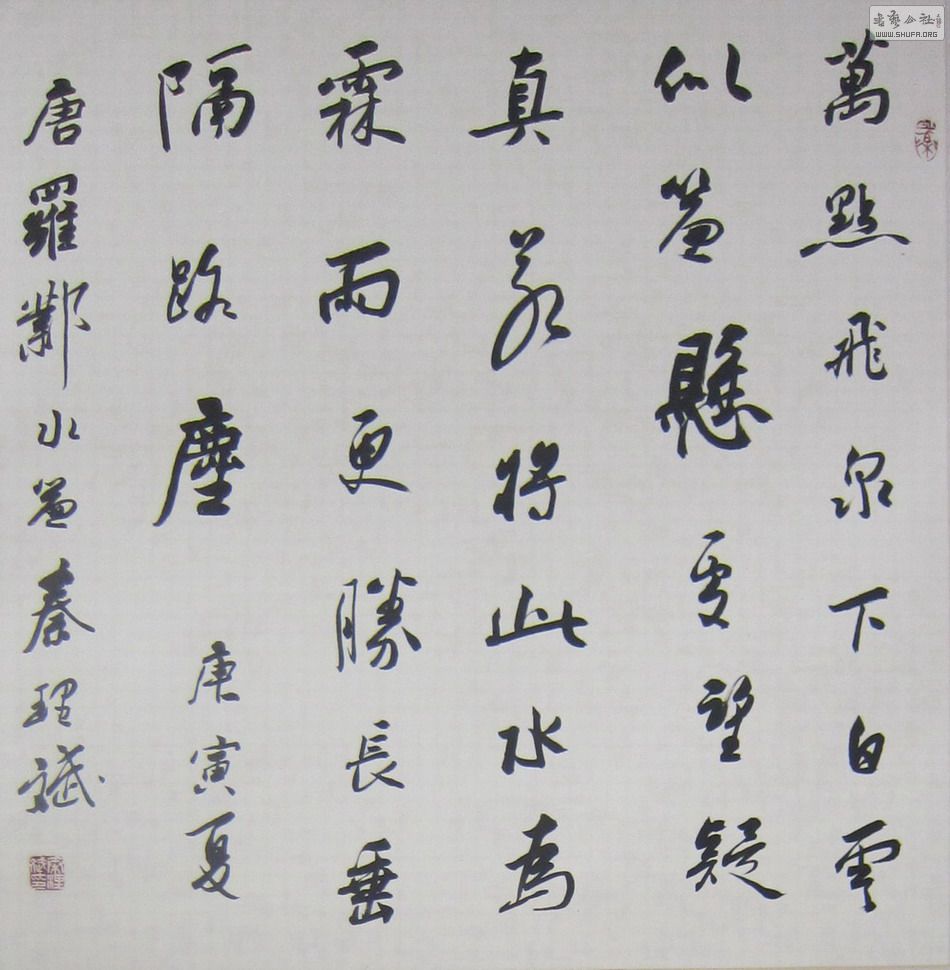 萬點飛泉下白雲
似簾懸處望疑
真若將此水為
霖雨更勝長垂
隔路塵 庚寅夏
唐羅鄴水簾秦理斌
書藝公社
WWW.SHUFA.ORG